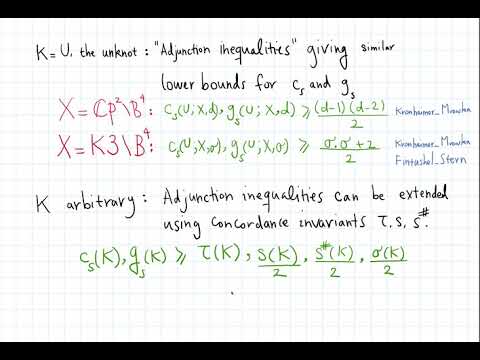 K=U, the unknot: "Adjunction inequalities" giving similar
lower bounds for c_s and g_s
X = ℂP²\B⁴: c_s(U;X,d), g_s(U;X,d) ≥ (d-1)(d-2)/2 Kronheimer_Mrowka
X = K3\B⁴: c_s(U;X,σ), g_s(U;X,σ) ≥ (σ·σ+2)/2 Kronheimer_Mrowka
Fintushel_Stern
K arbitrary: Adjunction inequalities can be extended
using concordance invariants τ, s, s^#.
c_s(K), g_s(K) ≥ τ(K), s(K)/2, s^#(K)/2, σ(K)/2